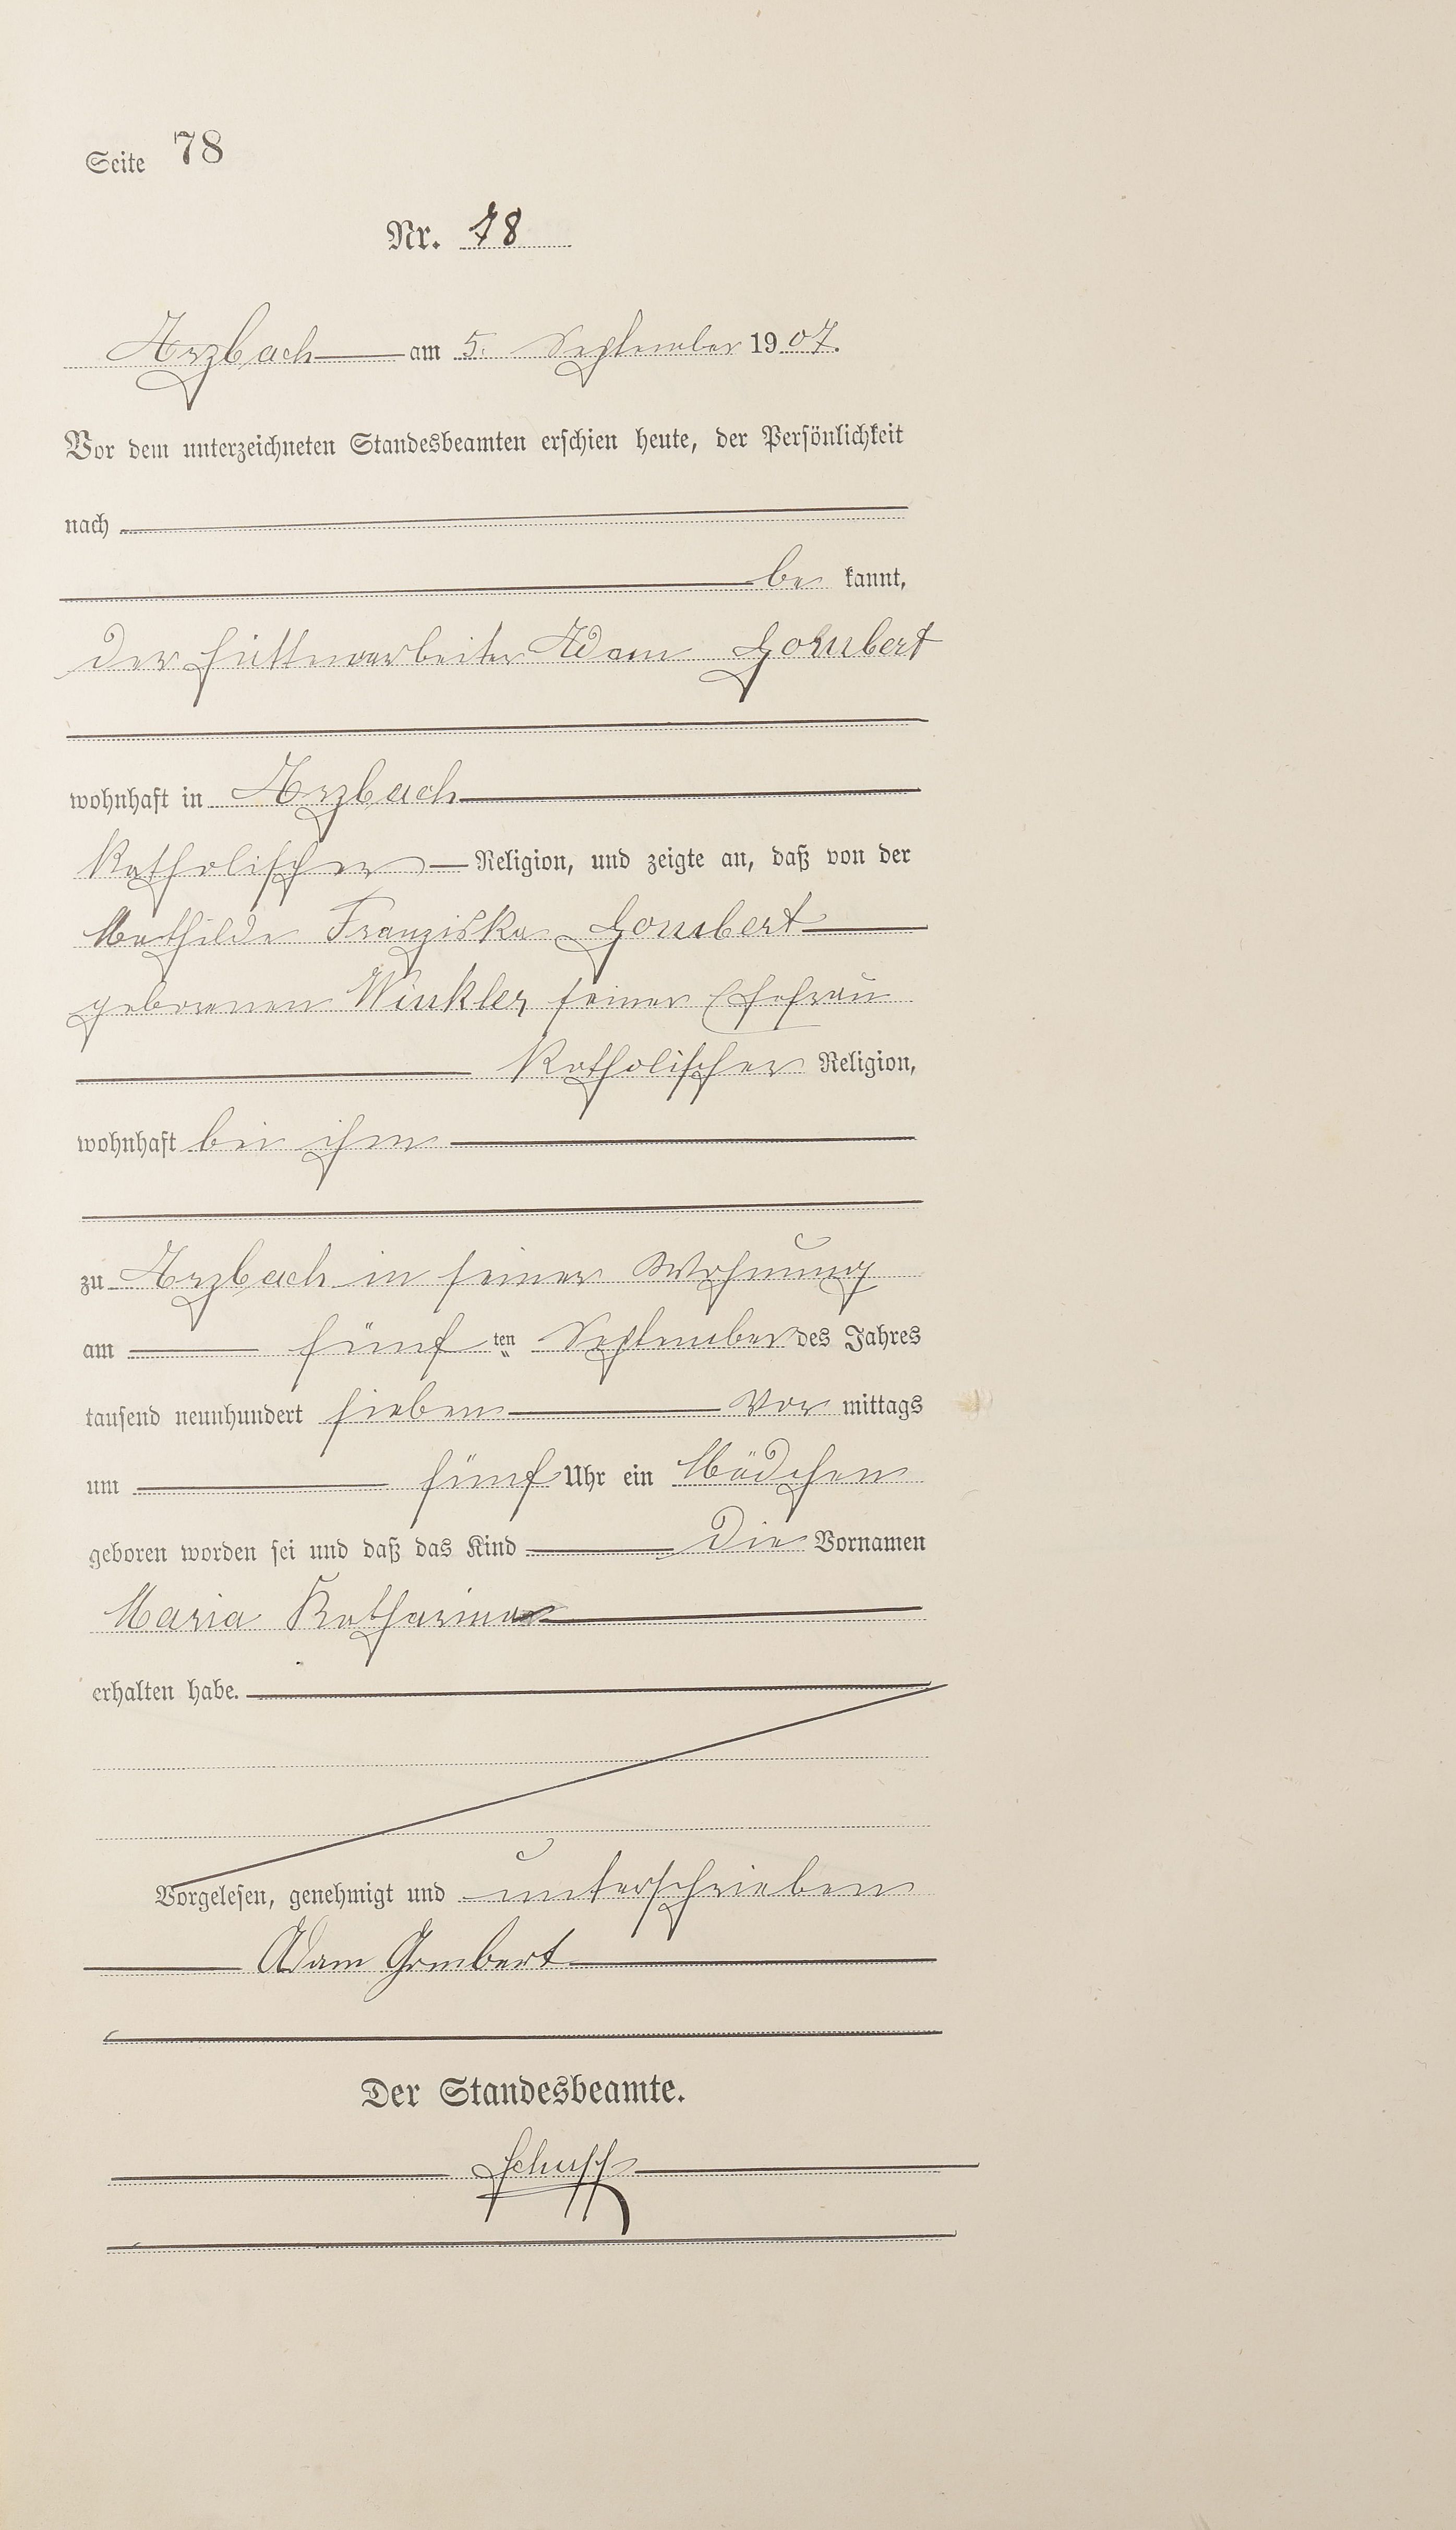 Seite 78
Nr. 78
Arzbach am 5. September 1907.
Vor dem unterzeichneten Standesbeamten erschien heute, der Persönlichkeit
nach
be kannt,
der Hüttenarbeiter Adam Gombert
wohnhaft in Arzbach
katholischer Religion, und zeigte an, daß von der
Mathilde Franziska Gombert
geborenen Winkler seiner Ehefrau
katholischer Religion,
wohnhaft bei ihm
zu Arzbach in seiner Wohnung
am fünf ten September des Jahres
tausend neunhundert sieben Vor mittags
um fünf Uhr ein Mädchen
geboren worden sei und daß das Kind die Vornamen
Maria Katharina
erhalten habe.
Vorgelesen, genehmigt und unterschrieben
Adam Gombert
Der Standesbeamte.